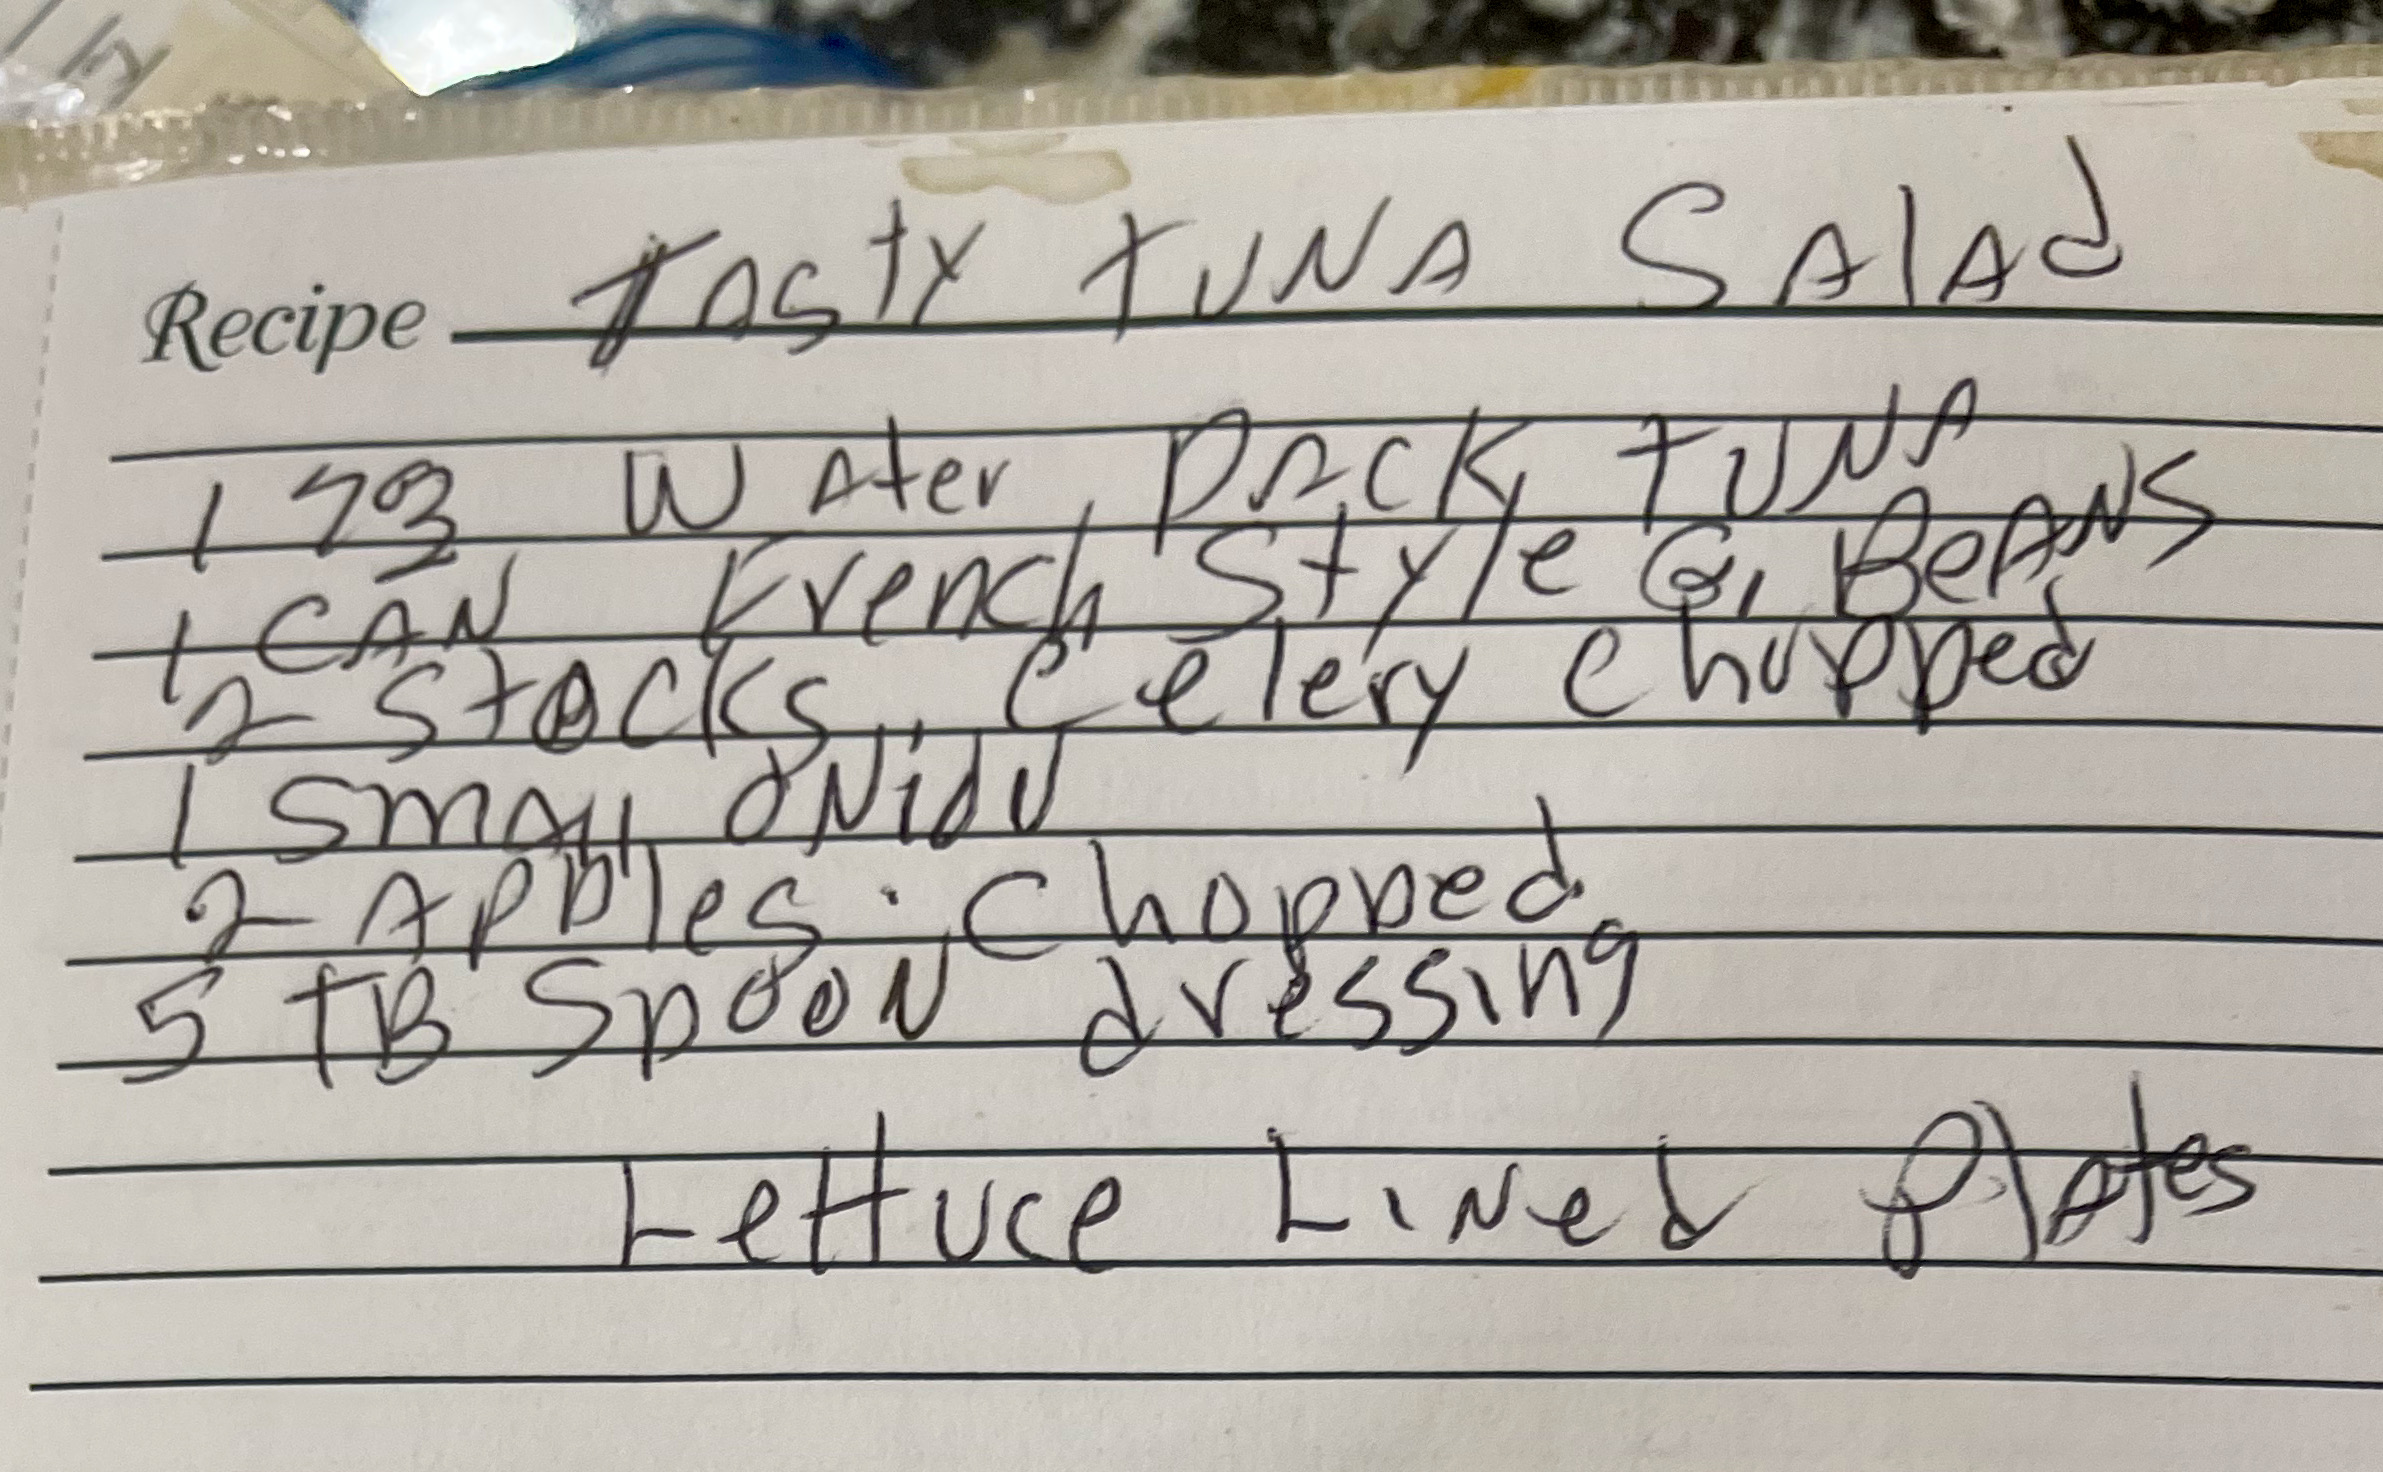 Recipe Tasty Tuna Salad
1 7oz Water Pack Tuna
1 CAN French Style G. Beans
2 Stocks Celery Chopped
1 Small Onion
2 Apples Chopped
5 TB Spoon dressing
Lettuce Lined Plates